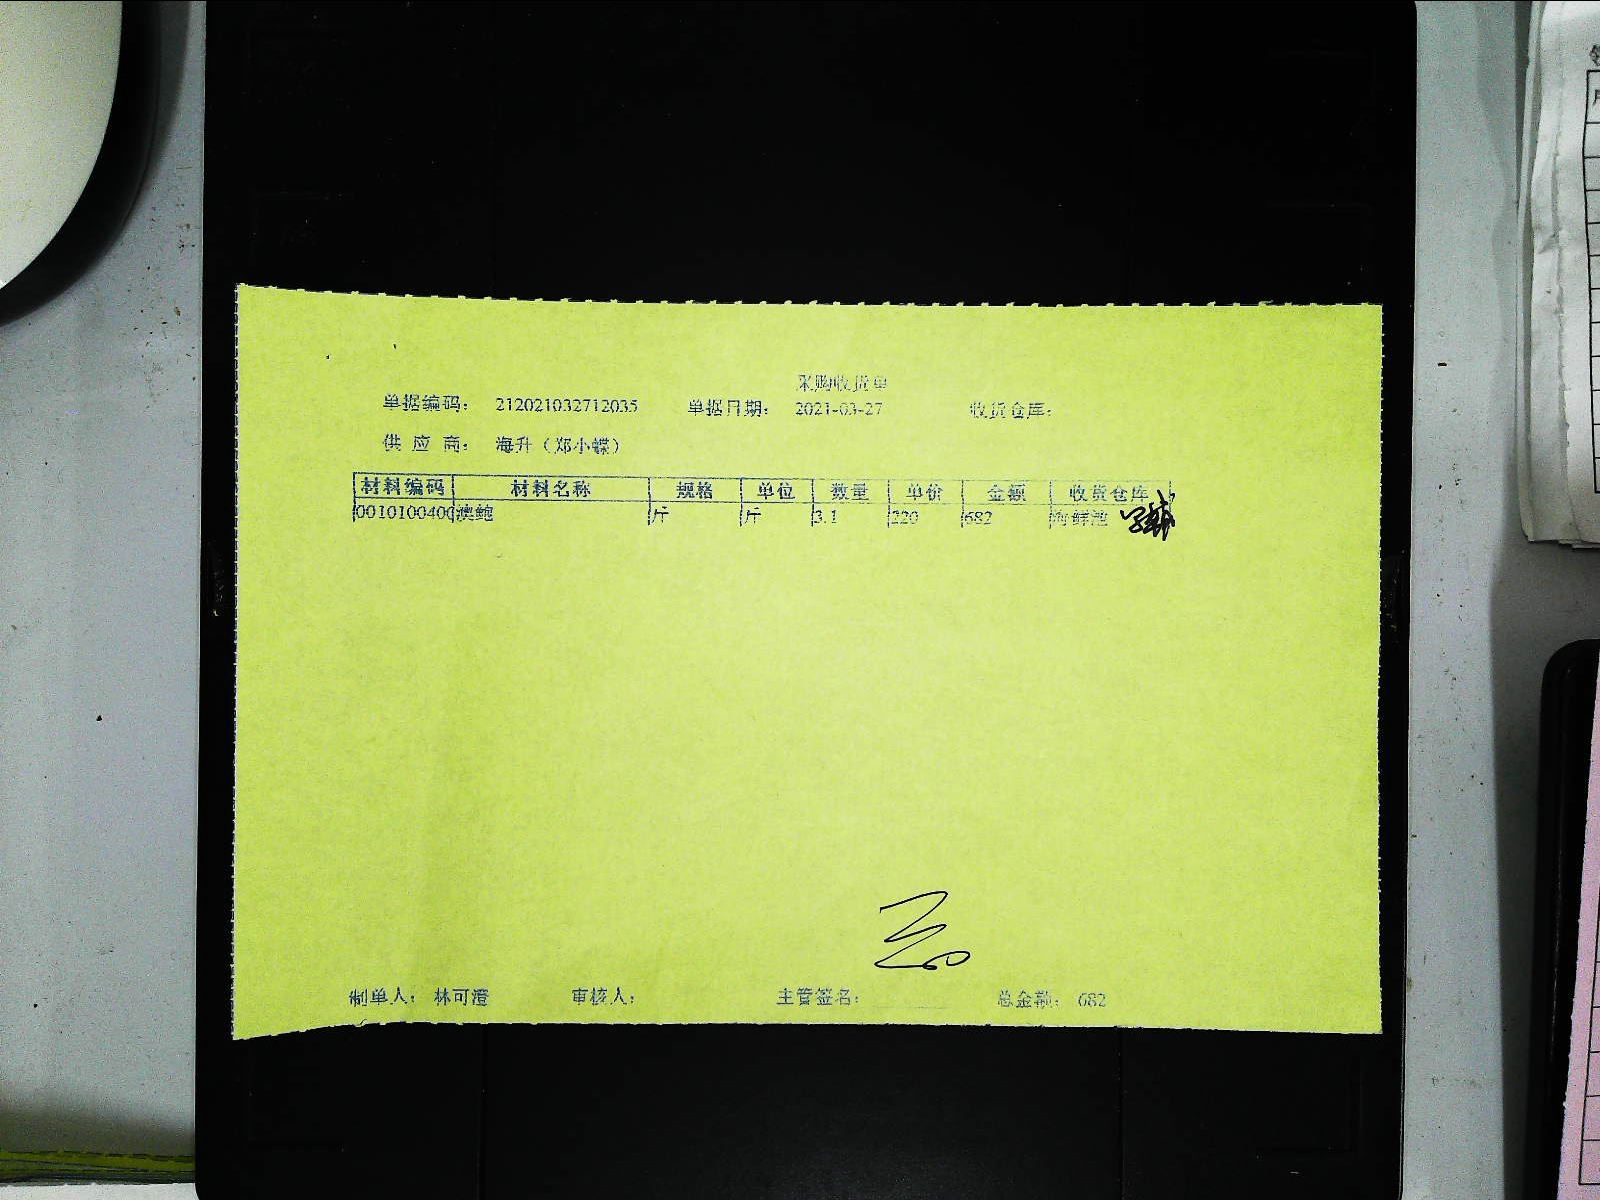 采购收货单
单据编码: 212021032712035 单据日期: 2021-03-27 收货仓库:
供应商: 海升（郑小蝶）
材料编码 材料名称 规格 单位 数量 单价 金额 收货仓库
0010100400 澳鲍 斤 斤 3.1 220 682 海鲜池
制单人: 林可澄 审核人: 主管签名: 总金额: 682